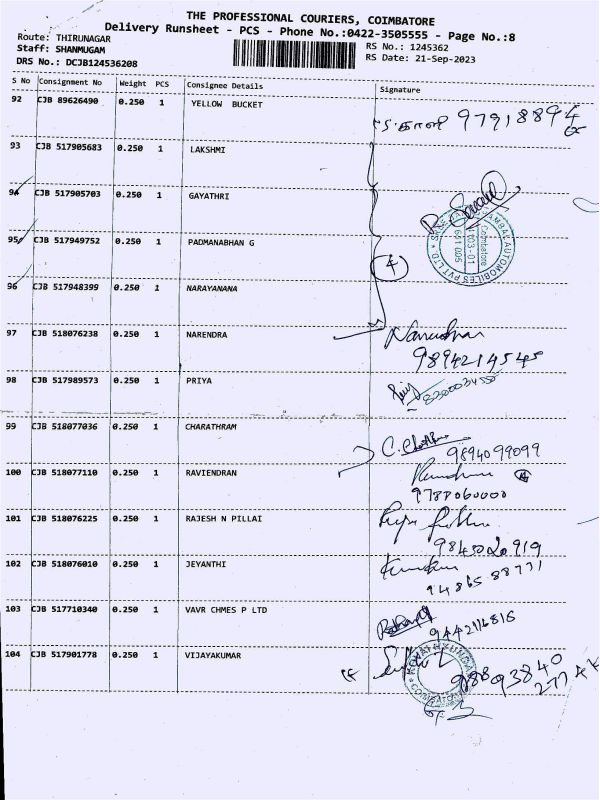 THE PROFESSIONAL COURIERS, COIMBATORE
Delivery Runsheet - PCS - Phone No.:0422-3505555 - Page No.:8
Route: THIRUNAGAR
Staff: SHANMUGAM
DRS No.: DCJB124536208
RS No.: 1245362
RS Date: 21-Sep-2023
S No Consignment No Weight PCS Consignee Details Signature
92 CJB 89626490 0.250 1 YELLOW BUCKET
93 CJB 517905683 0.250 1 LAKSHMI
94 CJB 517905703 0.250 1 GAYATHRI
95 CJB 517949752 0.250 1 PADMANABHAN G
4
96 CJB 517948399 0.250 1 NARAYANANA
97 CJB 518076238 0.250 1 NARENDRA
9894214545
98 CJB 517989573 0.250 1 PRIYA
99 CJB 518077036 0.250 1 CHARATHRAM
9894099099
100 CJB 518077110 0.250 1 RAVIENDRAN
101 CJB 518076225 0.250 1 RAJESH N PILLAI
9845020919
102 CJB 518076010 0.250 1 JEYANTHI
103 CJB 517710340 0.250 1 VAVR CHMES P LTD
104 CJB 517901778 0.250 1 VIJAYAKUMAR